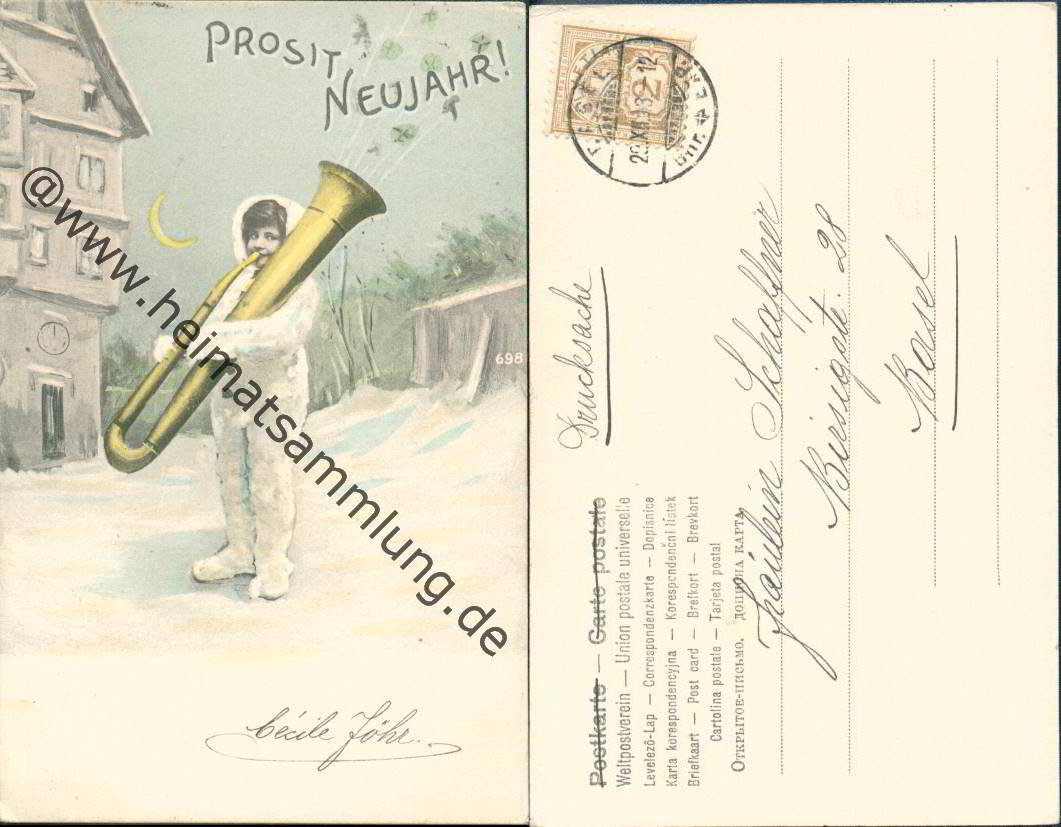 PROSIT
NEUJAHR!
698
@www.heimatsammlung.de
Cécile Jöhr.
Drucksache
Postkarte — Carte postale
Weltpostverein — Union postale universelle
Levelező-Lap — Correspondenzkarte — Dopisnice
Karta korespondencyjna — Korespondenční lístek
Briefkaart — Post card — Brefkort — Brevkort
Cartolina postale — Tarjeta postal
Открытое-письмо. Дописна карта.
Fräulein Schaffner
Birsigstr. 28
Basel